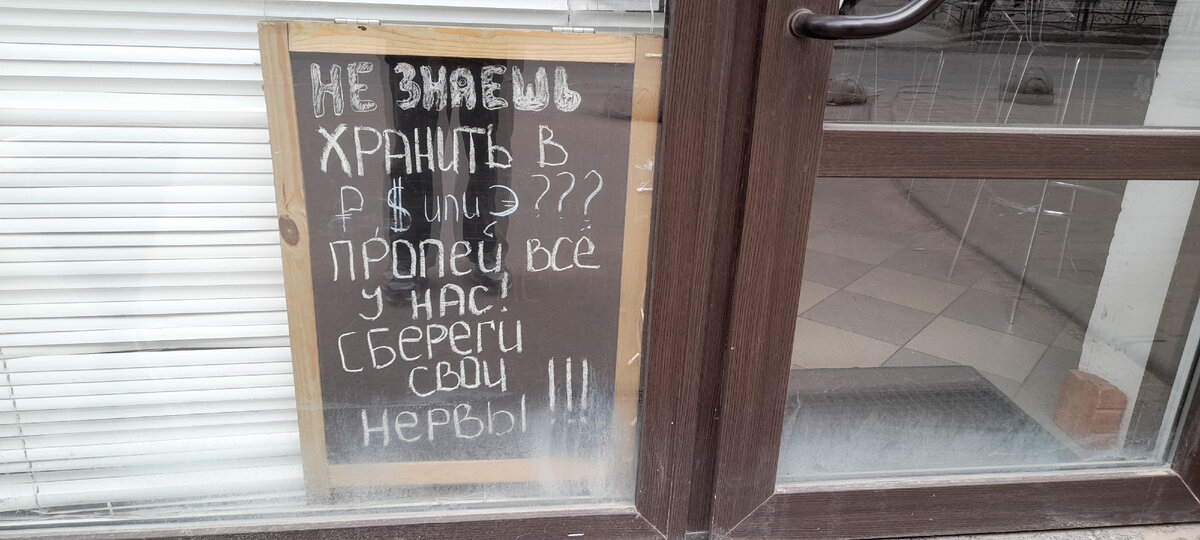 НЕ ЗНАЕШЬ
ХРАНИТЬ В
₽ $ или Э ???
ПРОПЕЙ ВСЁ
У НАС!
СБЕРЕГИ
СВОИ
НЕРВЫ !!!